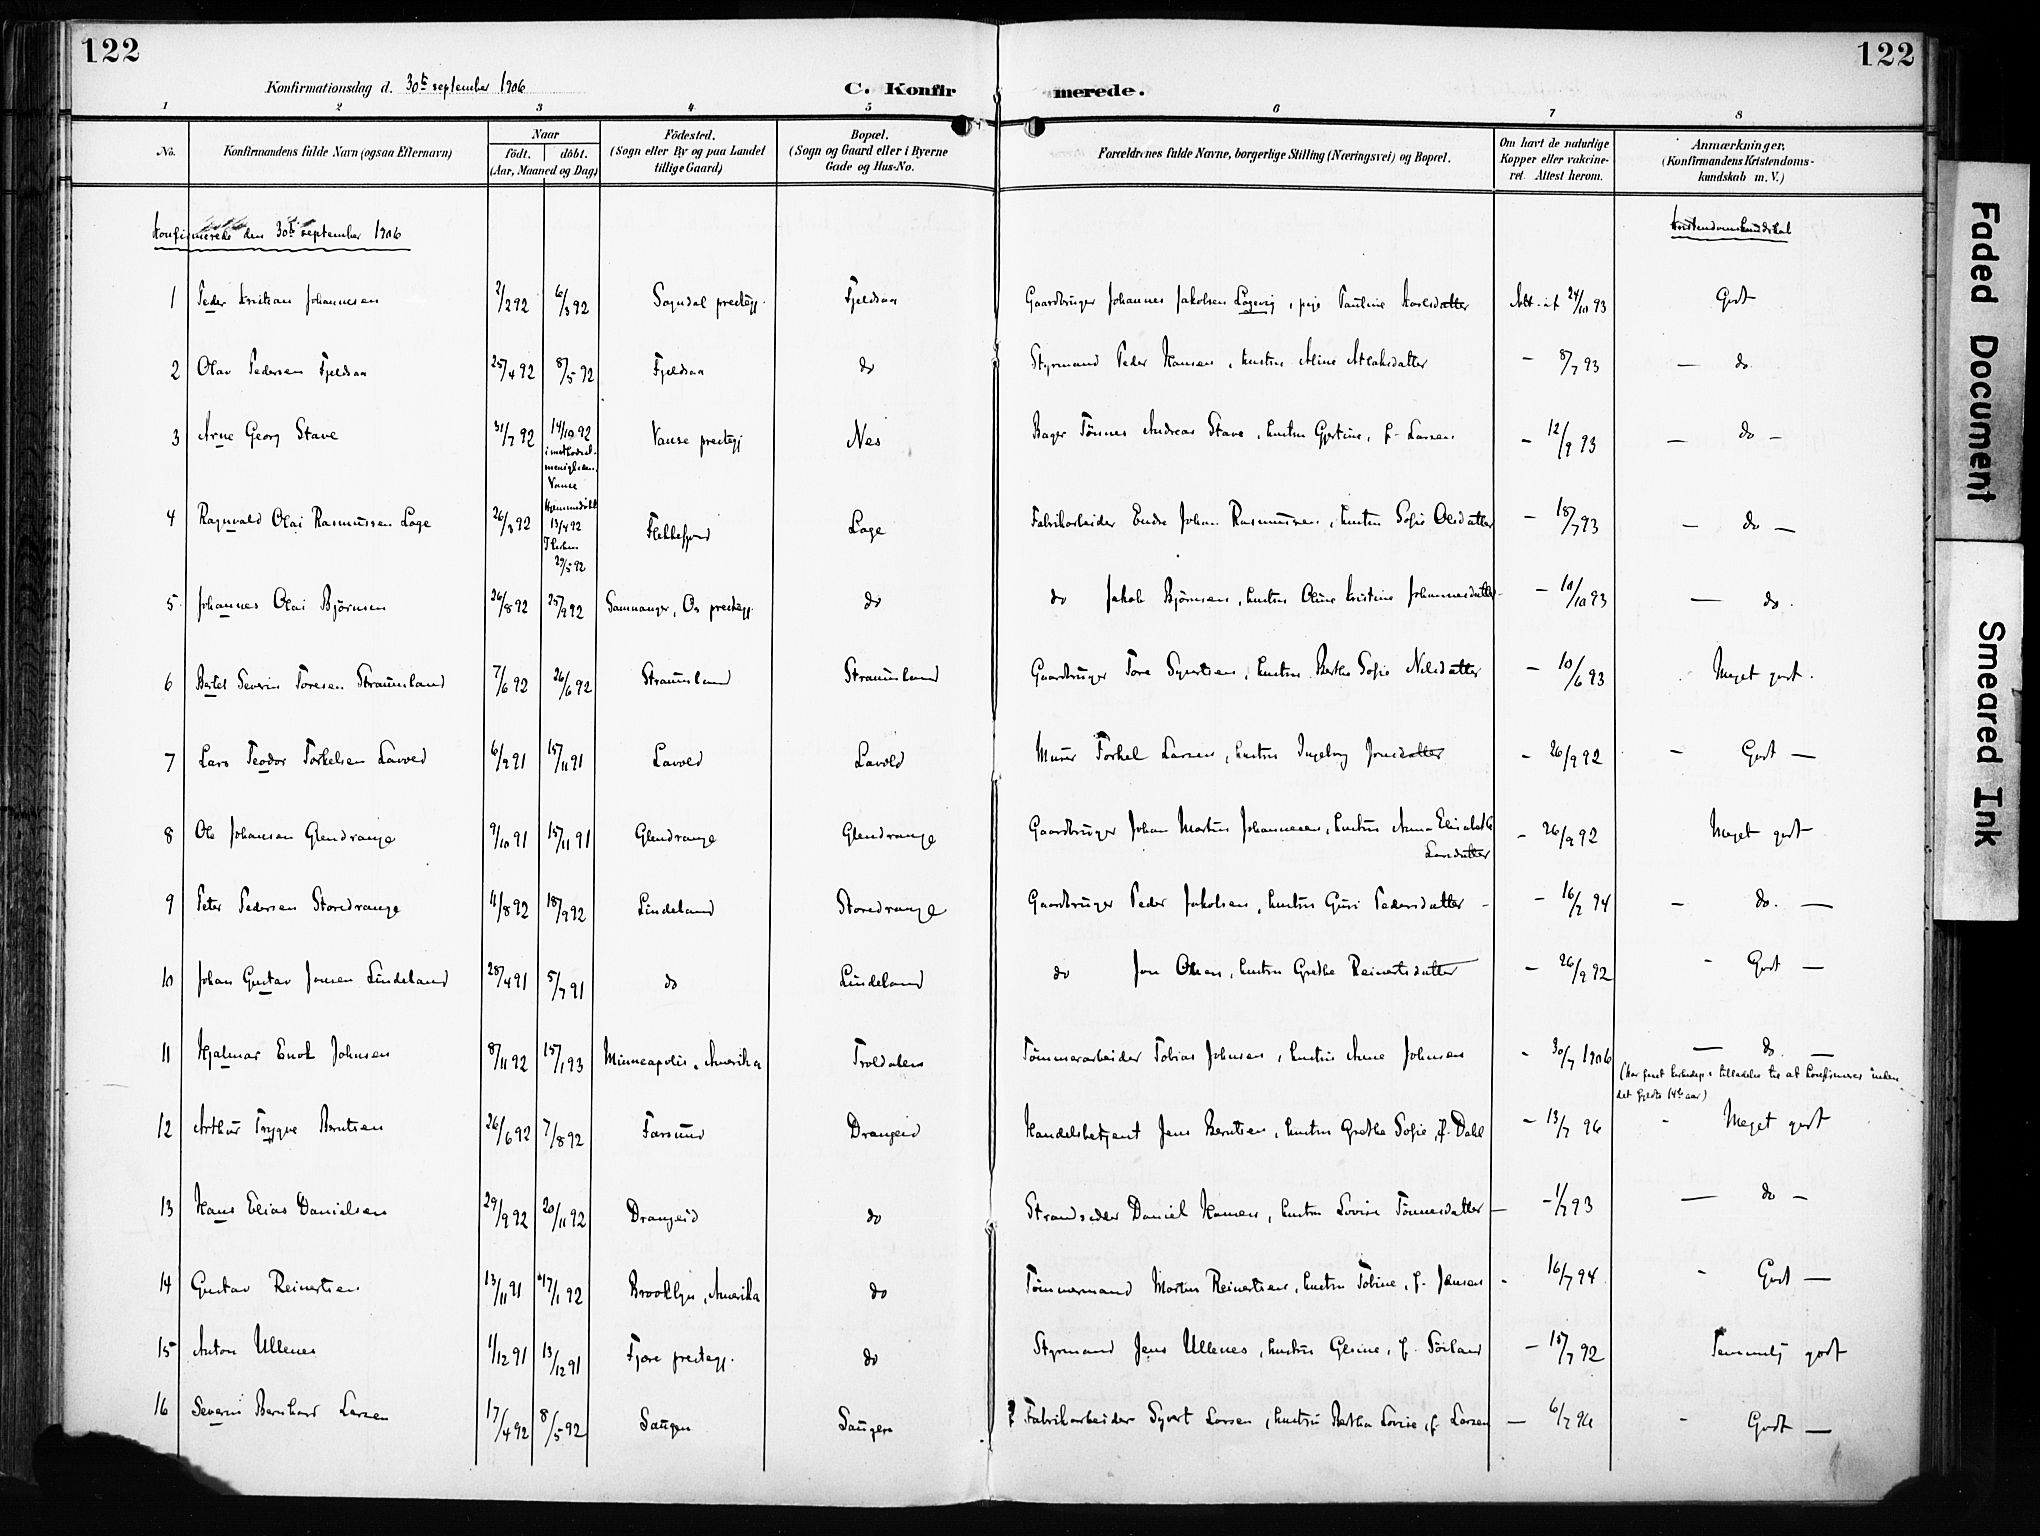 122
122
Konfirmationsdag d. 30te september 1906
C. Konfir merede.
1 2 3 4 5 6 7 8
No.
Konfirmandens fulde Navn (ogsaa Efternavn)
Naar
födt. döbt.
(Aar, Maaned og Dag)
Födested.
(Sogn eller By og paa Landet
tillige Gaard)
Bopæl.
(Sogn og Gaard eller i Byerne
Gade og Hus-No.
Forældrenes fulde Navne, borgerlige Stilling (Næringsvei) og Bopæl.
Om havt de naturlige
Kopper eller vakcine-
ret. Attest herom.
Anmærkninger.
(Konfirmandens Kristendoms-
kundskab m. V.)
Konfirmerede den 30te september 1906
Kristendomskundskab
1 Peder Kristian Johannesen 2/2 92 6/3 92 Sogndal prestegj. Fjeldsaa Gaardbruger Johannes Jakobsen Løgevig, pige Pauline Karlsdatter Att. af 24/10 93 Godt
2 Olav Pedersen Fjeldsaa 25/4 92 8/5 92 Fjeldsaa do Styrmand Peder Hansen, hustru Aline Atlaksdatter - 8/7 93 - do
3 Arne Georg Stave 31/7 92 14/10 92 Vanse prestegj Nes Bager Tönnes Andreas Stave, hustru Gjertine, f. Larsen - 12/9 93 - do -
i methodist-
menigheden.
Vanse
4 Ragnvald Olai Rasmussen Loge 26/3 92 Hjemmedöbt 13/4 92 Flekkefjord Loge Fabrikarbeider Endre Johan Rasmussen, hustru Sofie Olsdatter - 18/7 93 - do -
29/5 92
5 Johannes Olai Björnsen 26/8 92 25/9 92 Samnanger, Os prestegj. do do Jakob Björnsen, hustru Oline Kristine Johannesdatter - 10/10 93 - do.
6 Bertel Severin Toresen Straumland 7/6 92 26/6 92 Straumland Straumland Gaardbruger Tore Syvertsen, hustru Berthe Sofie Nilsdatter - 10/6 93 Meget godt.
7 Lars Teodor Torkelsen Lavold 6/9 91 15/11 91 Lavold Lavold Murer Torkel Larsen, hustru Ingeborg Jonsdatter - 26/9 92 - Godt -
8 Ole Johansen Glendrange 9/10 91 15/11 91 Glendrange Glendrange Gaardbruger Johan Martin Johannesen, hustru Anna Elisabeth - 26/9 92 Meget godt
Larsdatter
9 Peter Pedersen Storedrange 11/8 92 18/9 92 Lindeland Storedrange Gaardbruger Peder Jakobsen, hustru Guri Pedersdatter - - 16/7 94 - do. -
10 Johan Gustav Jonsen Lindeland 28/4 91 5/7 91 do Lindeland do Jon Olsen, hustru Grethe Reinertsdatter - 26/9 92 - Godt -
11 Hjalmar Enok Johnsen 8/11 92 15/1 93 Minneapolis, Amerika Troldalen Tömmerarbeider Tobias Johnsen, hustru Anne Johnsen - 30/7 1906 - do -
(Har faaet biskops tilladelse til at konfirmeres inden
det fyldte 14de aar)
12 Arthur Trygve Berntsen 26/6 92 7/8 92 Farsund Drangeid Handelsbetjent Jens Berntsen, hustru Grethe Sofie, f. Dahl - 13/7 96 - Meget godt
13 Hans Elias Danielsen 29/9 92 20/11 92 Drangeid do Strandsidder Daniel Hansen, hustru Lovise Tönnesdatter - - 1/7 93 - do -
14 Gustav Reinertsen 13/11 91 17/1 92 Brooklyn, Amerika do Tömmermand Martin Reinertsen, hustru Tobine, f. Jensen - 16/7 94 - Godt -
15 Anton Ullenes 1/12 91 13/12 91 Fjære prestegj. do Styrmand Jens Ullenes, hustru Gesine, f. Sörland - 15/7 92 Temmelig godt
16 Severin Bernhard Larsen 17/4 92 8/5 92 Saugen Saugen Fabrikarbeider Syvert Larsen, hustru Bertha Lovise, f. Larsen - 6/7 94 - Godt -
Faded Document
Smeared Ink